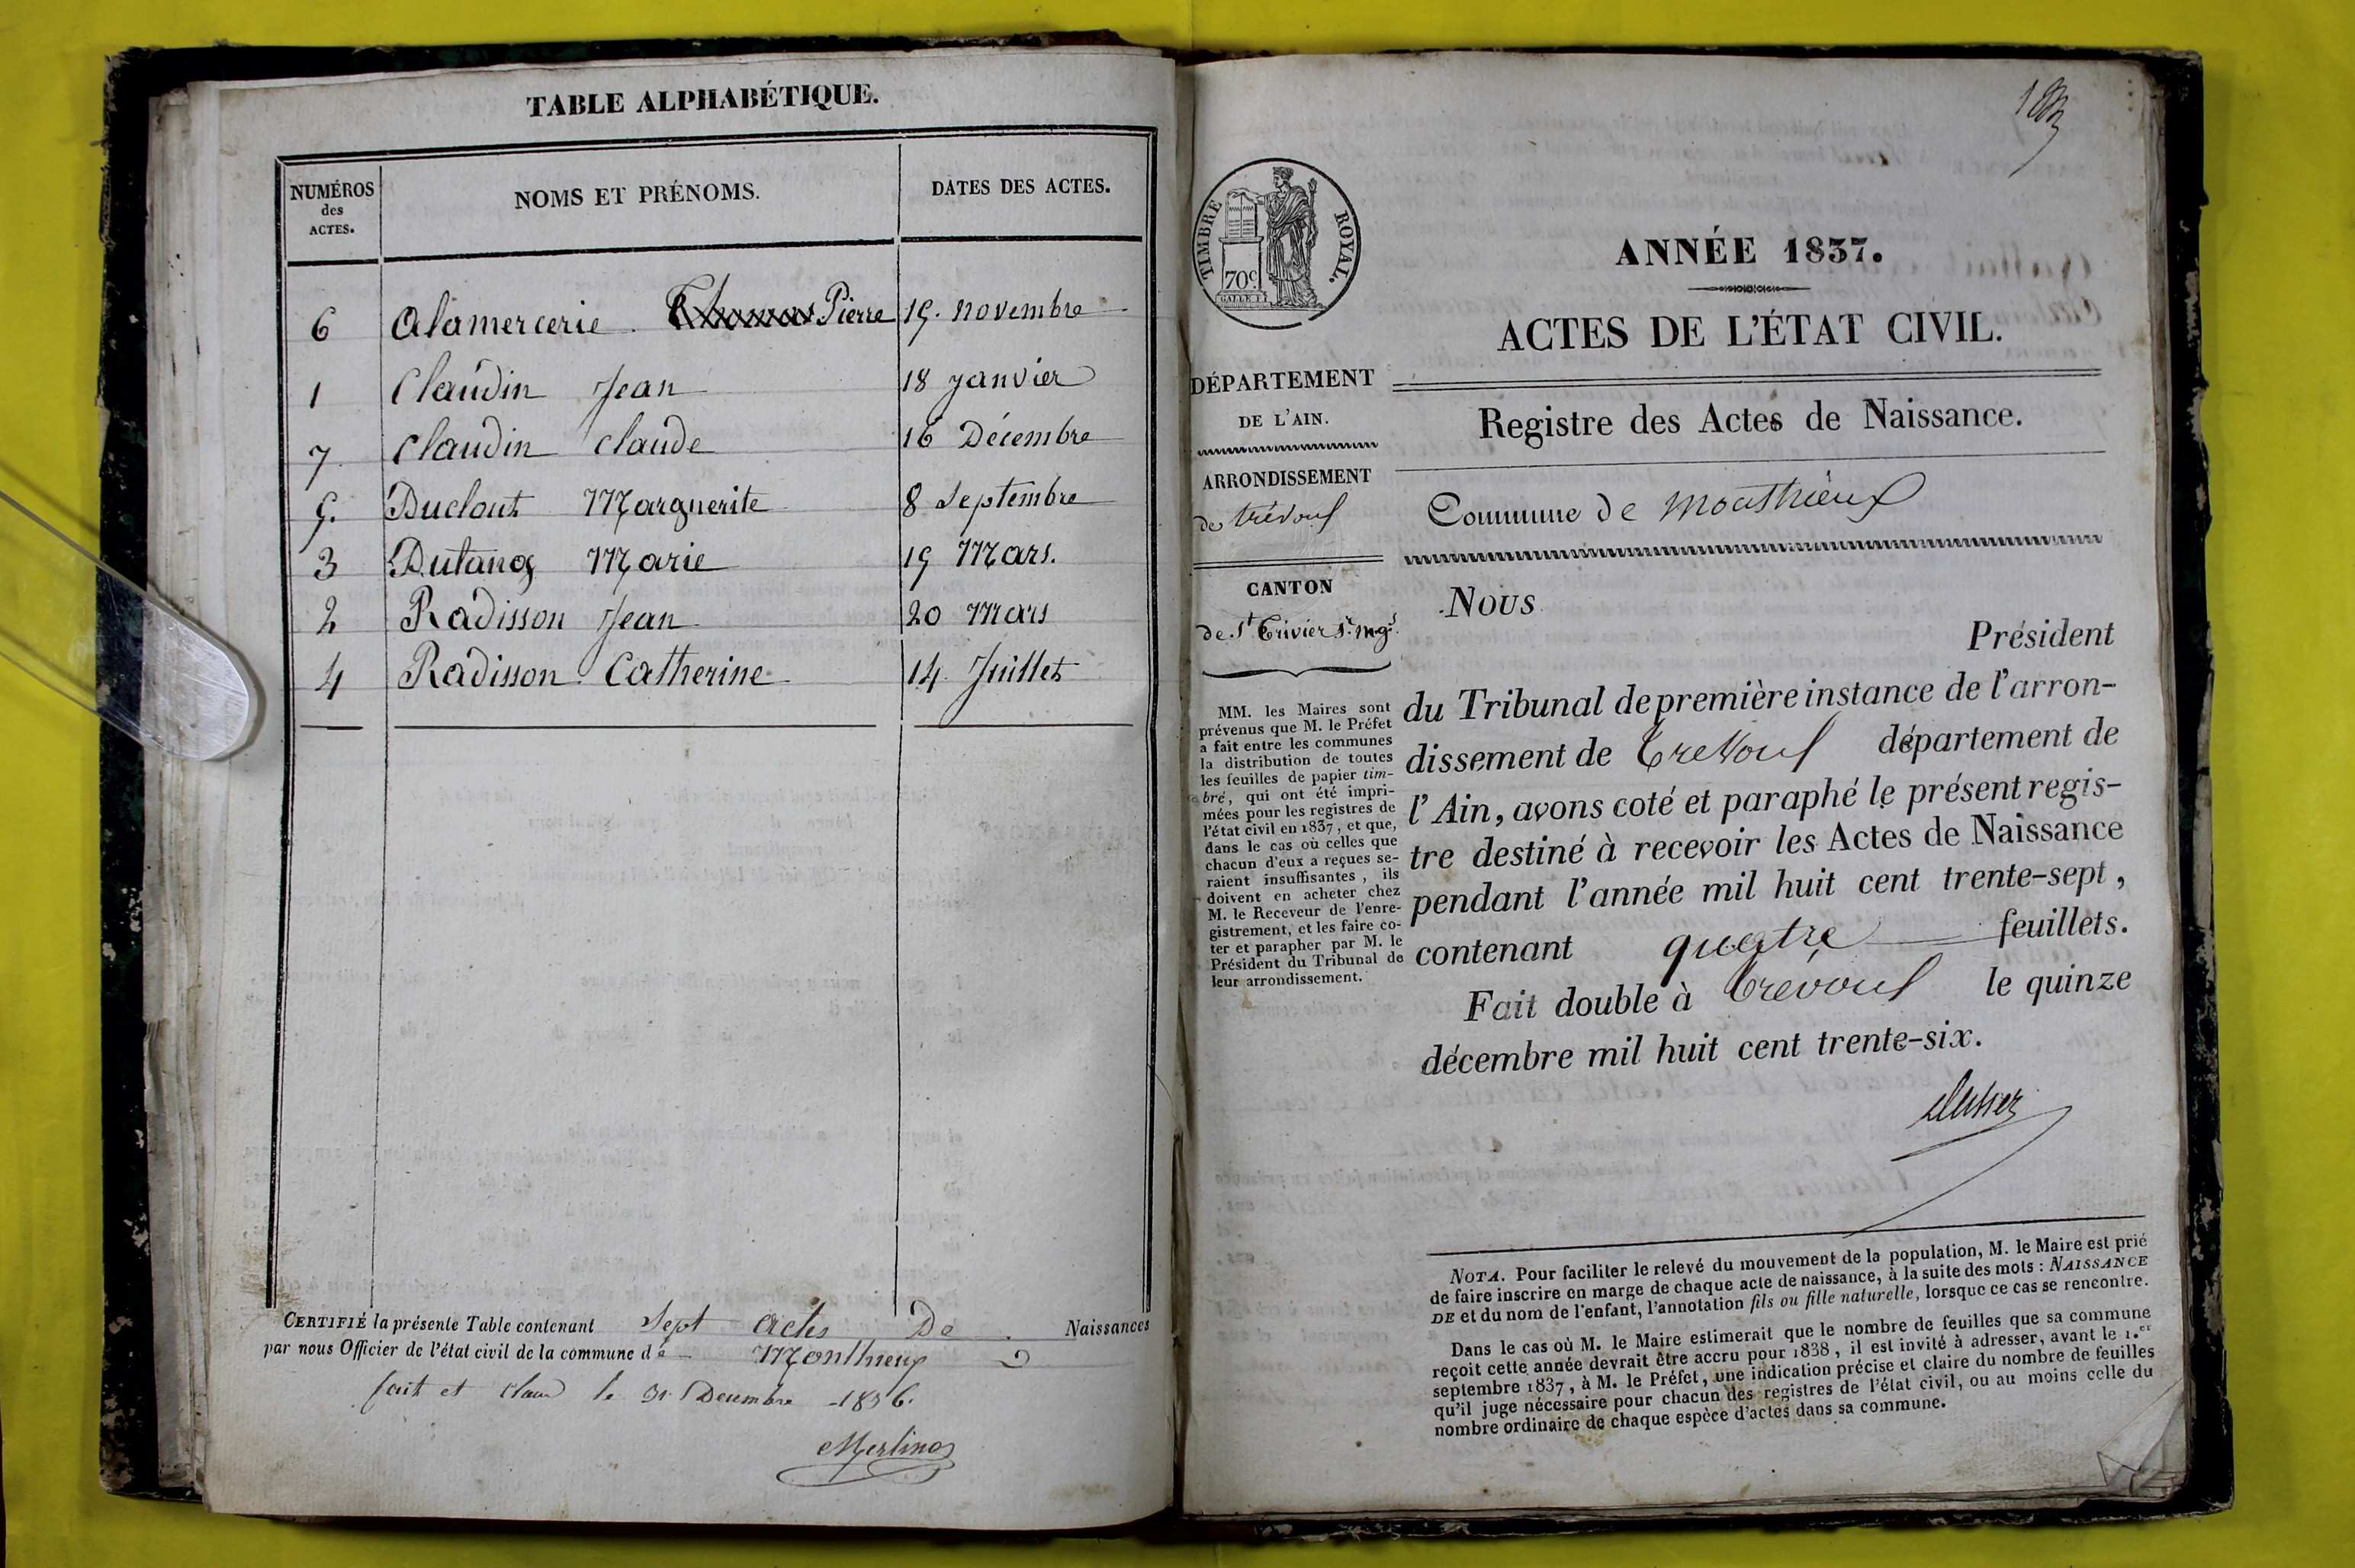 TABLE ALPHABÉTIQUE.
NUMÉROS des ACTES. NOMS ET PRÉNOMS. DATES DES ACTES.
6 Alamercerie Thomas Pierre 19. novembre
1 Claudin Jean 18 janvier
7 Claudin Claude 16 Décembre
5. Duclout Marguerite 8 Septembre
3 Dutang Marie 19 Mars.
2 Radisson Jean 20 Mars
4 Radisson Catherine 14 Juillet
CERTIFIÉ la présente Table contenant Sept actes De Naissances
par nous Officier de l'état civil de la commune de Monthieux
fait et clau le 31 Decembre 1836.
Merlino
TIMBRE ROYAL.
70c.
ANNÉE 1837.
ACTES DE L'ÉTAT CIVIL.
Registre des Actes de Naissance.
Commune de Monthieux
DÉPARTEMENT
DE L'AIN.
ARRONDISSEMENT
de trévoux
CANTON
de St Trivier
MM. les Maires sont
prévenus que M. le Préfet
a fait entre les communes
la distribution de toutes
les feuilles de papier tim-
bré, qui ont été impri-
mées pour les registres de
l'état civil en 1837, et que,
dans le cas où celles que
chacun d'eux a reçues se-
raient insuffisantes, ils
doivent en acheter chez
M. le Receveur de l'enre-
gistrement, et les faire co-
ter et parapher par M. le
Président du Tribunal de
leur arrondissement.
Nous
Président
du Tribunal de première instance de l'arron-
dissement de Trevoux département de
l'Ain, avons coté et paraphé le présent regis-
tre destiné à recevoir les Actes de Naissance
pendant l'année mil huit cent trente-sept,
contenant quatre feuillets.
Fait double à Trévoux le quinze
décembre mil huit cent trente-six.
NOTA. Pour faciliter le relevé du mouvement de la population, M. le Maire est prié
de faire inscrire en marge de chaque acte de naissance, à la suite des mots : NAISSANCE
DE et du nom de l'enfant, l'annotation fils ou fille naturelle, lorsque ce cas se rencontre.
Dans le cas où M. le Maire estimerait que le nombre de feuilles que sa commune
reçoit cette année devrait être accru pour 1838, il est invité à adresser, avant le 1.er
septembre 1837, à M. le Préfet, une indication précise et claire du nombre de feuilles
qu'il juge nécessaire pour chacun des registres de l'état civil, ou au moins celle du
nombre ordinaire de chaque espèce d'actes dans sa commune.